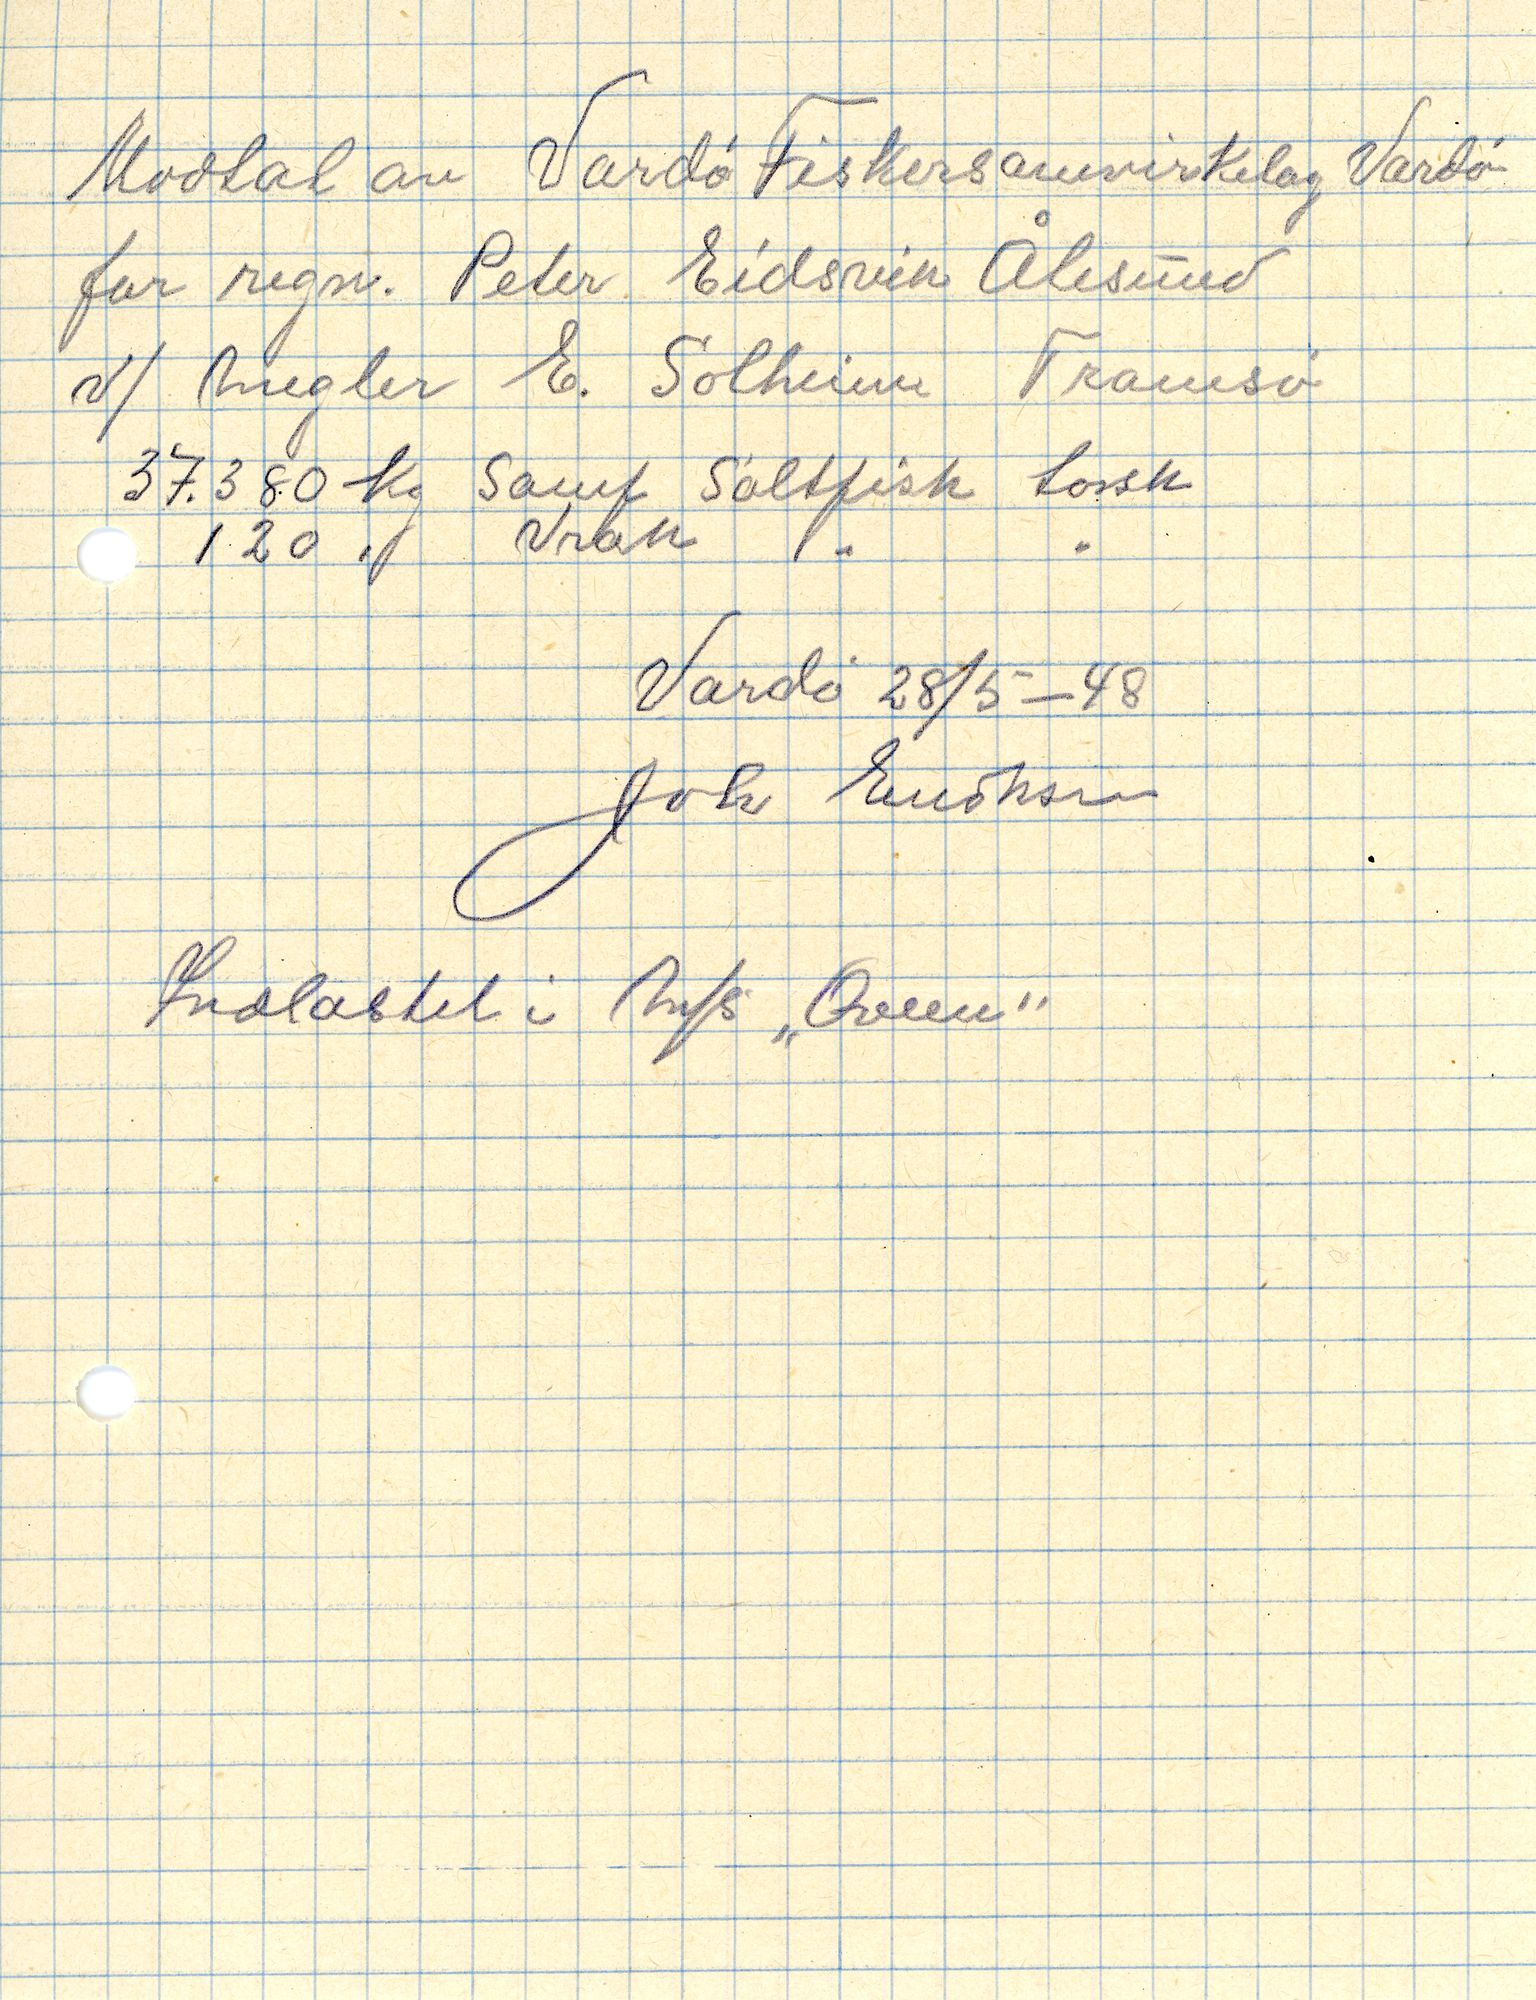 Modtat av Vardö Fiskersamvirkelag Vardö
for regn. Peter Eidsvik Ålesund
v/ Megler E. Solheim Tromsö
37.380 kg Samf Saltfisk torsk
120 " Vrak " "
Vardö 28/5-48
Joh Enoksen
Indlastet i M/s „Oveen"